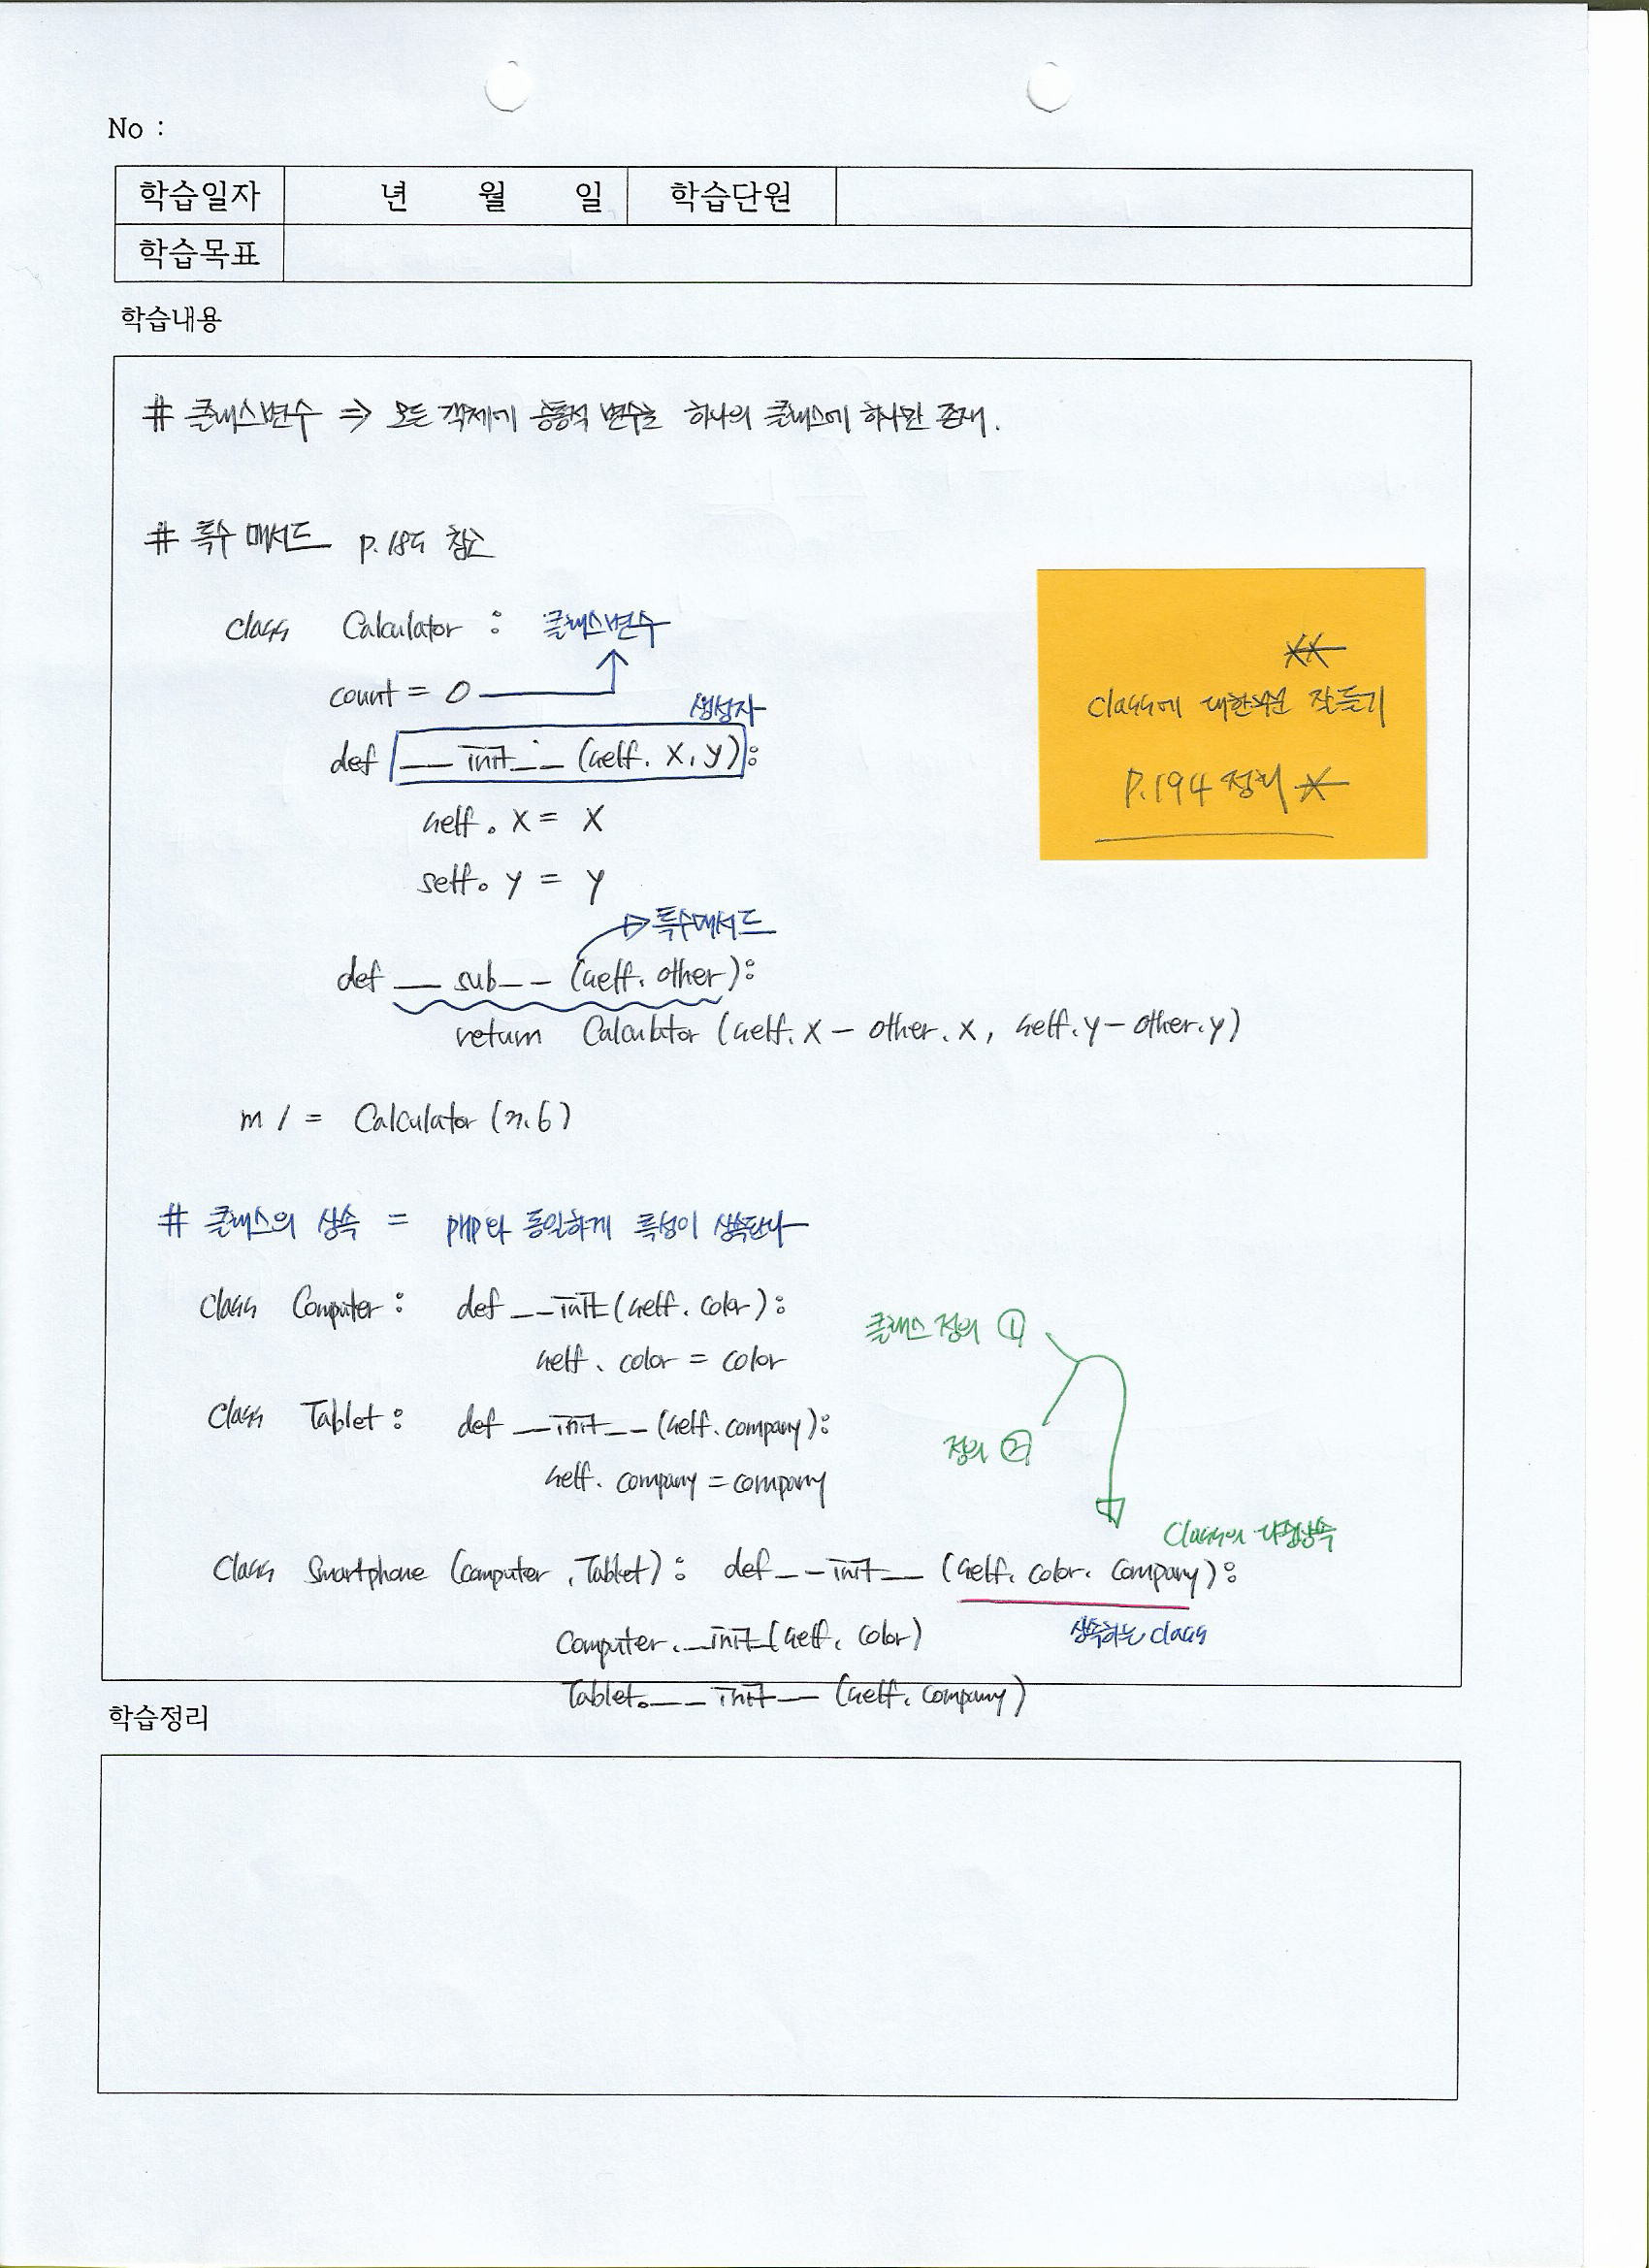 No :
학습일자 년 월 일 학습단원
학습목표
학습내용
# 클래스변수 ⇒ 모든 객체에 공통적 변수로 하나의 클래스에 하나만 존재.
# 특수 메서드 p.185 참고
class Calculator : 클래스변수
count = 0
생성자
def __init__(self. x, y):
self. x = x
self. y = y
특수메서드
def __sub__(self. other):
return Calculator (self. x - other. x, self. y - other. y)
** 
class에 대한 잘듣기
P.194 정리 *
m 1 = Calculator (7. 6)
# 클래스의 상속 = PHP와 동일하게 특성이 상속된다
class Computer : def __init(self. color):
self. color = color
클래스 정의 ①
class Tablet : def __init__(self. company):
정의 ②
self. company = company
class의 다중상속
class Smartphone (computer, Tablet): def __init__ (self. color. company):
상속하는 class
Computer. __init(self. color)
Tablet. __init__ (self. company)
학습정리